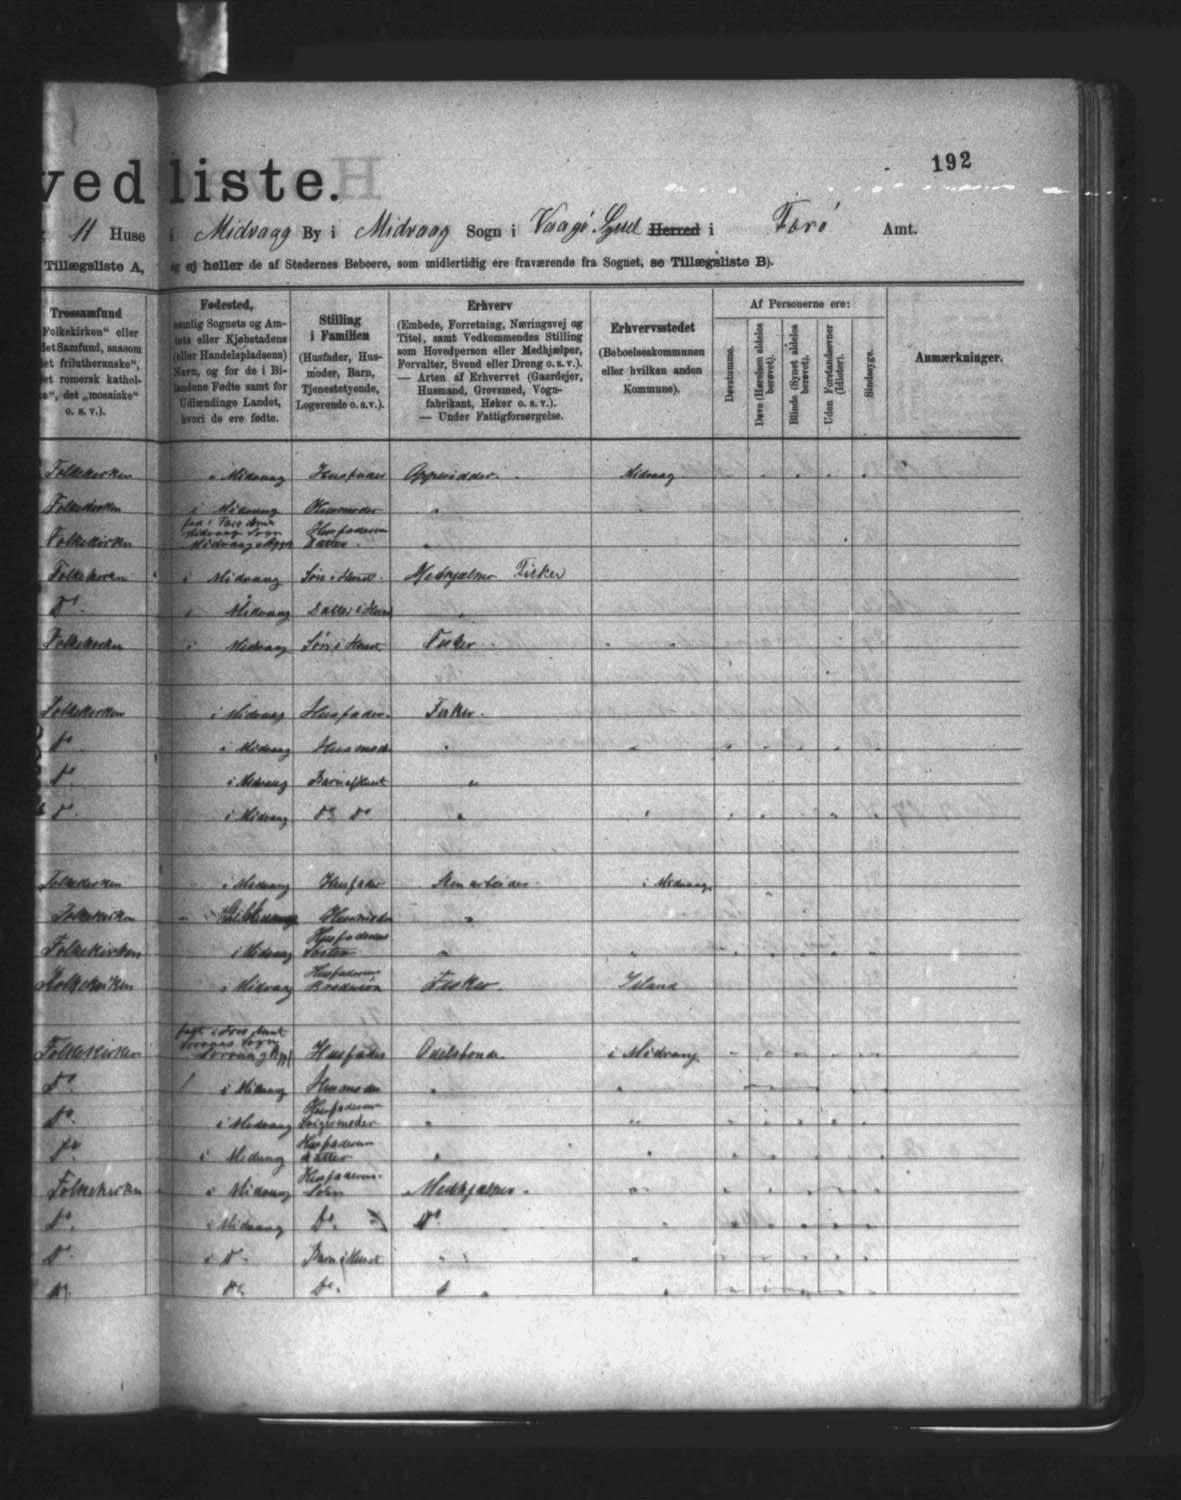 192
ved liste.
11 Huse i Midvaag By i Midvaag Sogn i Vaagø Syssel Herred i Færø Amt.
Tillægsliste A, og ej heller de af Stedernes Beboere, som midlertidig ere fraværende fra Sognet, se Tillægsliste B).
Trossamfund
Folkekirken" eller
det Samfund, saasom
det frilutheranske",
det romersk kathol-
", det „mosaiske"
o. s. v.).
Fødested,
nemlig Sognets og Am-
tets eller Kjøbstadens
(eller Handelspladsens)
Navn, og for de i Bi-
landene Fødte samt for
Udlændinge Landet,
hvori de ere fødte.
Stilling
i Familien
(Husfader, Hus-
moder, Barn,
Tjenestetyende,
Logerende o. s. v.).
Erhverv
(Embede, Forretning, Næringsvej og
Titel, samt Vedkommendes Stilling
som Hovedperson eller Medhjælper,
Forvalter, Svend eller Dreng o. s. v.).
— Arten af Erhvervet (Gaardejer,
Husmand, Grovsmed, Vogn-
fabrikant, Høker o. s. v.).
— Under Fattigforsørgelse.
Erhvervsstedet
(Beboelseskommunen
eller hvilken anden
Kommune).
Af Personerne ere:
Døvstumme.
Døve (Hørelsen aldeles berøvet).
Blinde (Synet aldeles berøvet).
Uden Forstandsevner (Idioter).
Sindssyge.
Anmærkninger.
Folkekirken i Midvaag Husfader Midvaag
Folkekirken i Midvaag Husmoder "
Folkekirken Midvaag Sogn Husfaderens Datter "
Folkekirken i Midvaag Søn i Huset Medhjælper Fisker
Do i Midvaag Datter i Huset "
Folkekirken i Midvaag Søn i Huset Fisker
Folkekirken i Midvaag Husfader Fisker.
Do i Midvaag Husmoder "
Do i Midvaag Barn i Huset "
Do i Midvaag Do Do "
Folkekirken i Midvaag Husfader Stenarbeider i Midvaag
Folkekirken Husmoder "
Folkekirken i Midvaag Husfaderens Søster "
Folkekirken i Midvaag Husfaderens Brodersøn Fisker. Island
Folkekirken Sorvaags Sogn Husfader Odelsbonde i Midvaag
Do i Midvaag Husmoder "
Do i Midvaag Husfaderens Svigermoder "
Do i Midvaag Husfaderens Datter "
Folkekirken i Midvaag Husfaderens Søn Medhjælper.
Do i Midvaag Do Do
Do i Do Barn i Huset "
Do Do Do "